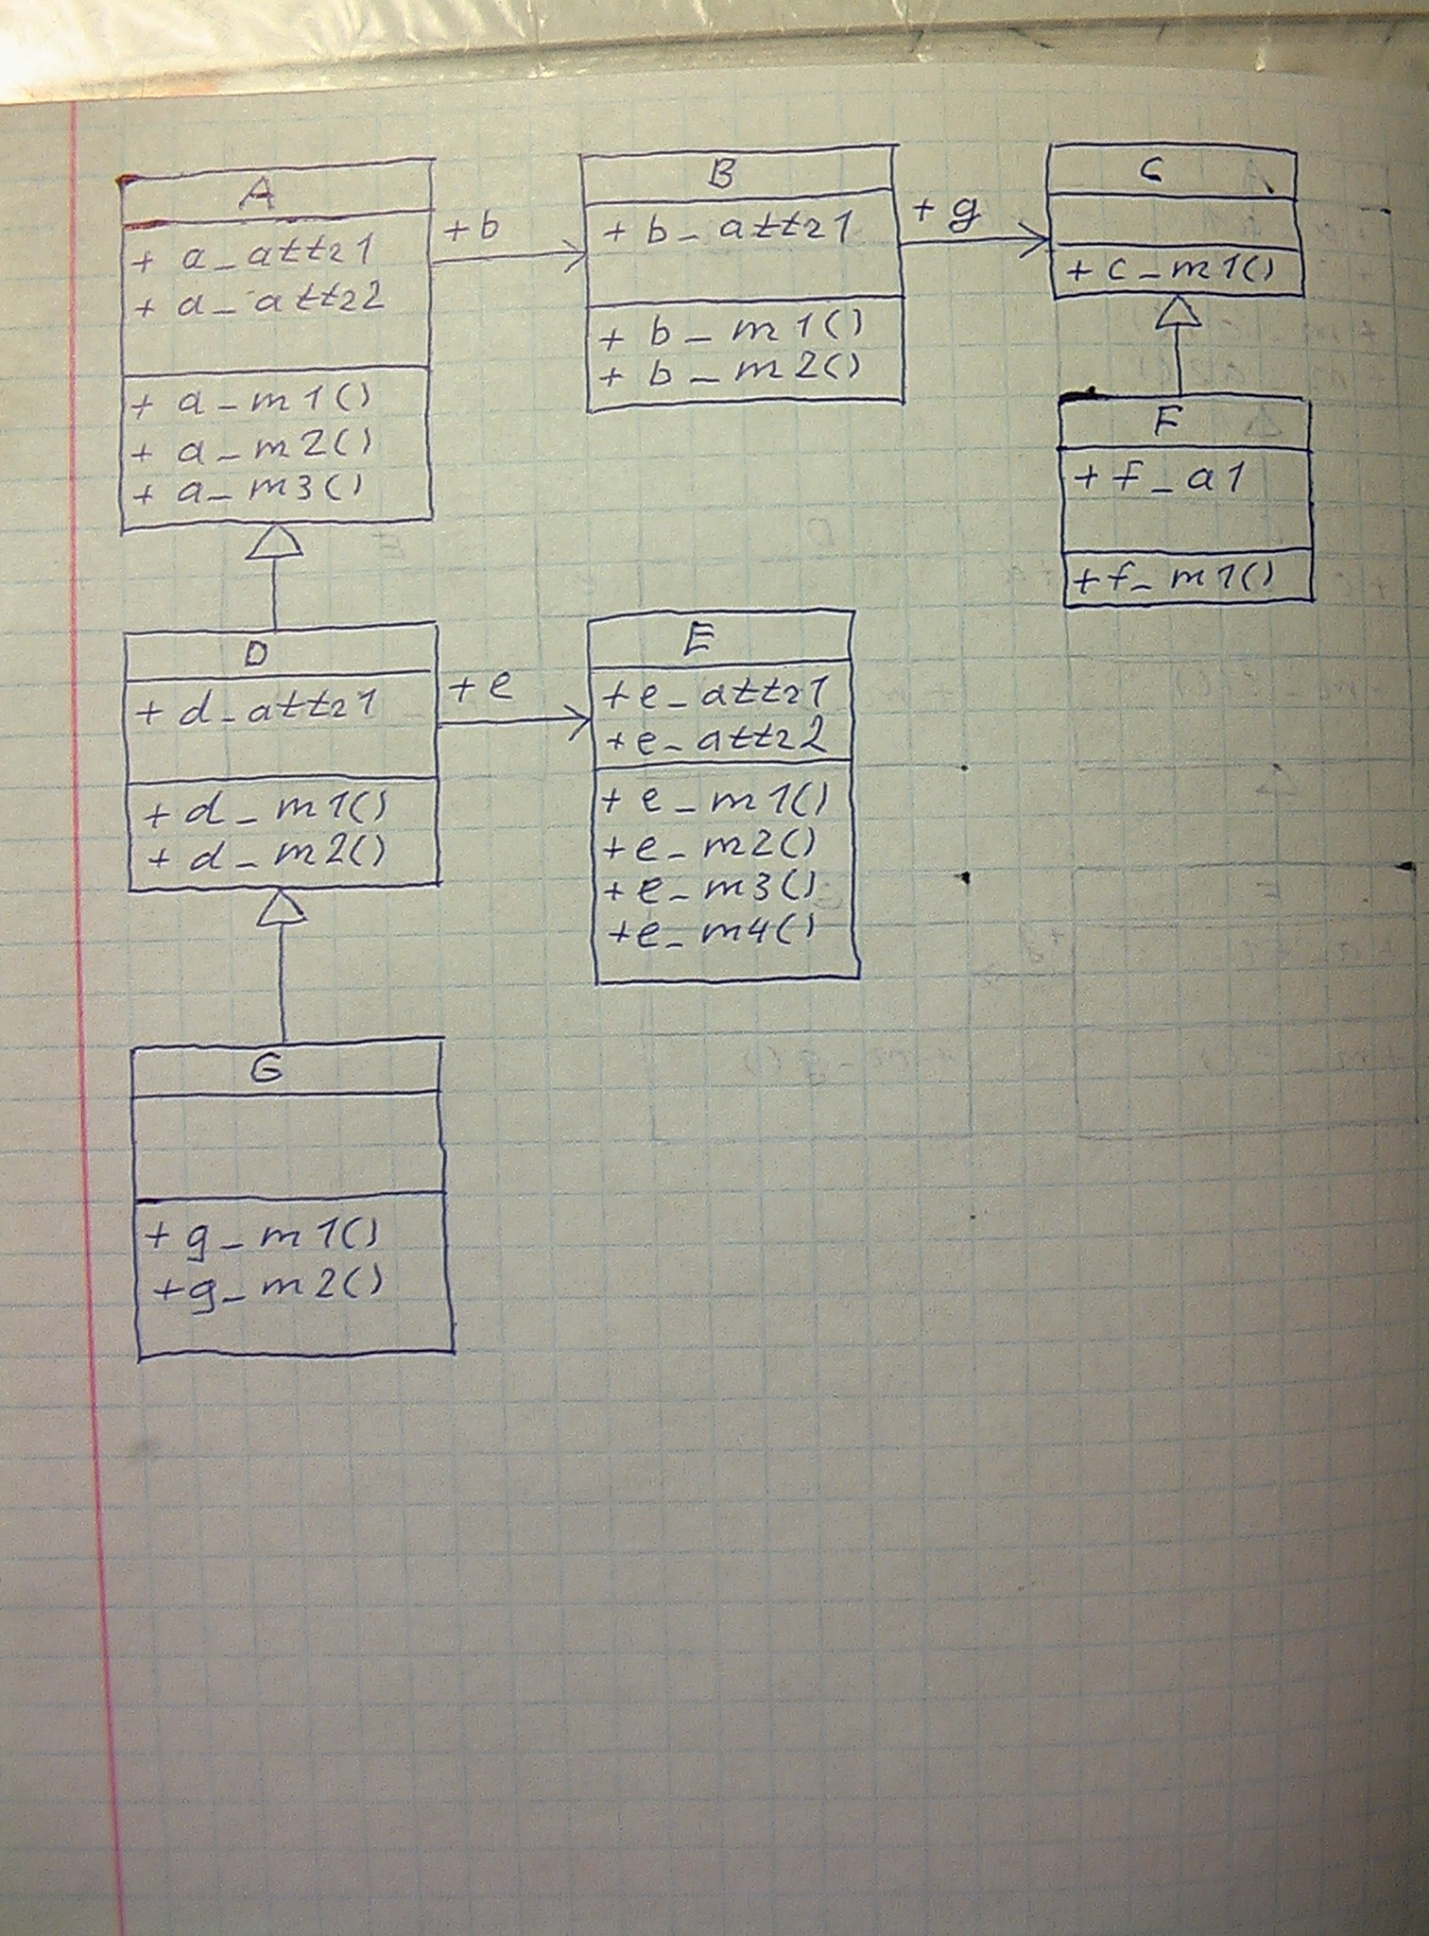 A
+ a_attr1
+ a_attr2
+ a_m1()
+ a_m2()
+ a_m3()
+b
B
+ b_attr1
+ b_m1()
+ b_m2()
+g
C
+ c_m1()
F
+ f_a1
+ f_m1()
D
+ d_attr1
+ d_m1()
+ d_m2()
+e
E
+e_attr1
+e_attr2
+ e_m1()
+e_m2()
+e_m3()
+e_m4()
G
+ g_m1()
+g_m2()